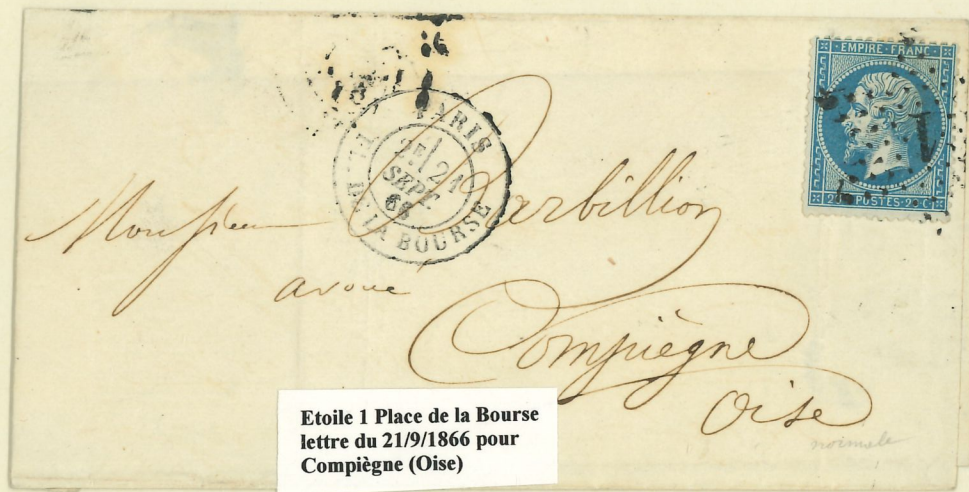 EMPIRE FRANC
1
20 POSTES 20 C
PARIS
PL. DE LA BOURSE
2E 21
SEPT
66
Monsieur Barbillion
avoué
Compiègne
Oise
normale
Etoile 1 Place de la Bourse
lettre du 21/9/1866 pour
Compiègne (Oise)